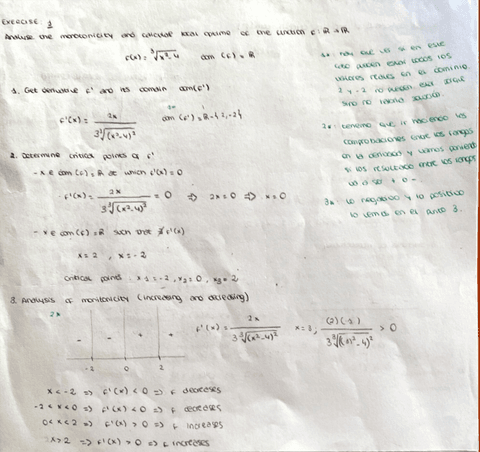 EXERCISE 1
Analyze the monotonicity and calculate local optima of the function f: R → R
f(x) = ∛(x²-4) dom (f) = R
1. Get derivative f' and its domain dom(f')
f'(x) = 2x / 3∛(x²-4)² dom (f') = R - {2,-2}
2. Determine critical points of f'
- x ∈ dom (f) = R at which f'(x) = 0
- f'(x) = 2x / 3∛(x²-4)² = 0 ⇒ 2x = 0 ⇒ x = 0
- x ∈ dom (f) = R such that ∄ f'(x)
x = 2 , x = -2
Critical points : x1 = -2, x2 = 0, x3 = 2
3. Analysis of monitonicity (increasing and decreasing)
3*
- - + +
-2 0 2
f'(x) = 2x / 3∛(x²-4)² x = 1, (2)(1) / 3∛((1)²-4)² > 0
x < -2 ⇒ f'(x) < 0 ⇒ f decreases
-2 < x < 0 ⇒ f'(x) < 0 ⇒ f decreases
0 < x < 2 ⇒ f'(x) > 0 ⇒ f increases
x > 2 ⇒ f'(x) > 0 ⇒ f increases
hay que ver si en este
caso pueden estar todos los
valores reales en el dominio
2 y -2 no pueden estar porque
sino no habria solucion.
2* tenemos que ir haciendo las
comprobaciones entre los rangos
en la derivada y vamos poniendo
si los resultados entre los rangos
va a ser + o -
3* Lo negativo y lo positivo
lo vemos en el punto 3.